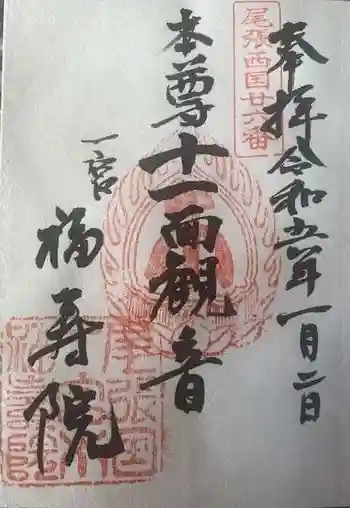 奉拝 令和五年一月二日
尾張西国廿六番
本尊十一面観音
一宮
福寿院